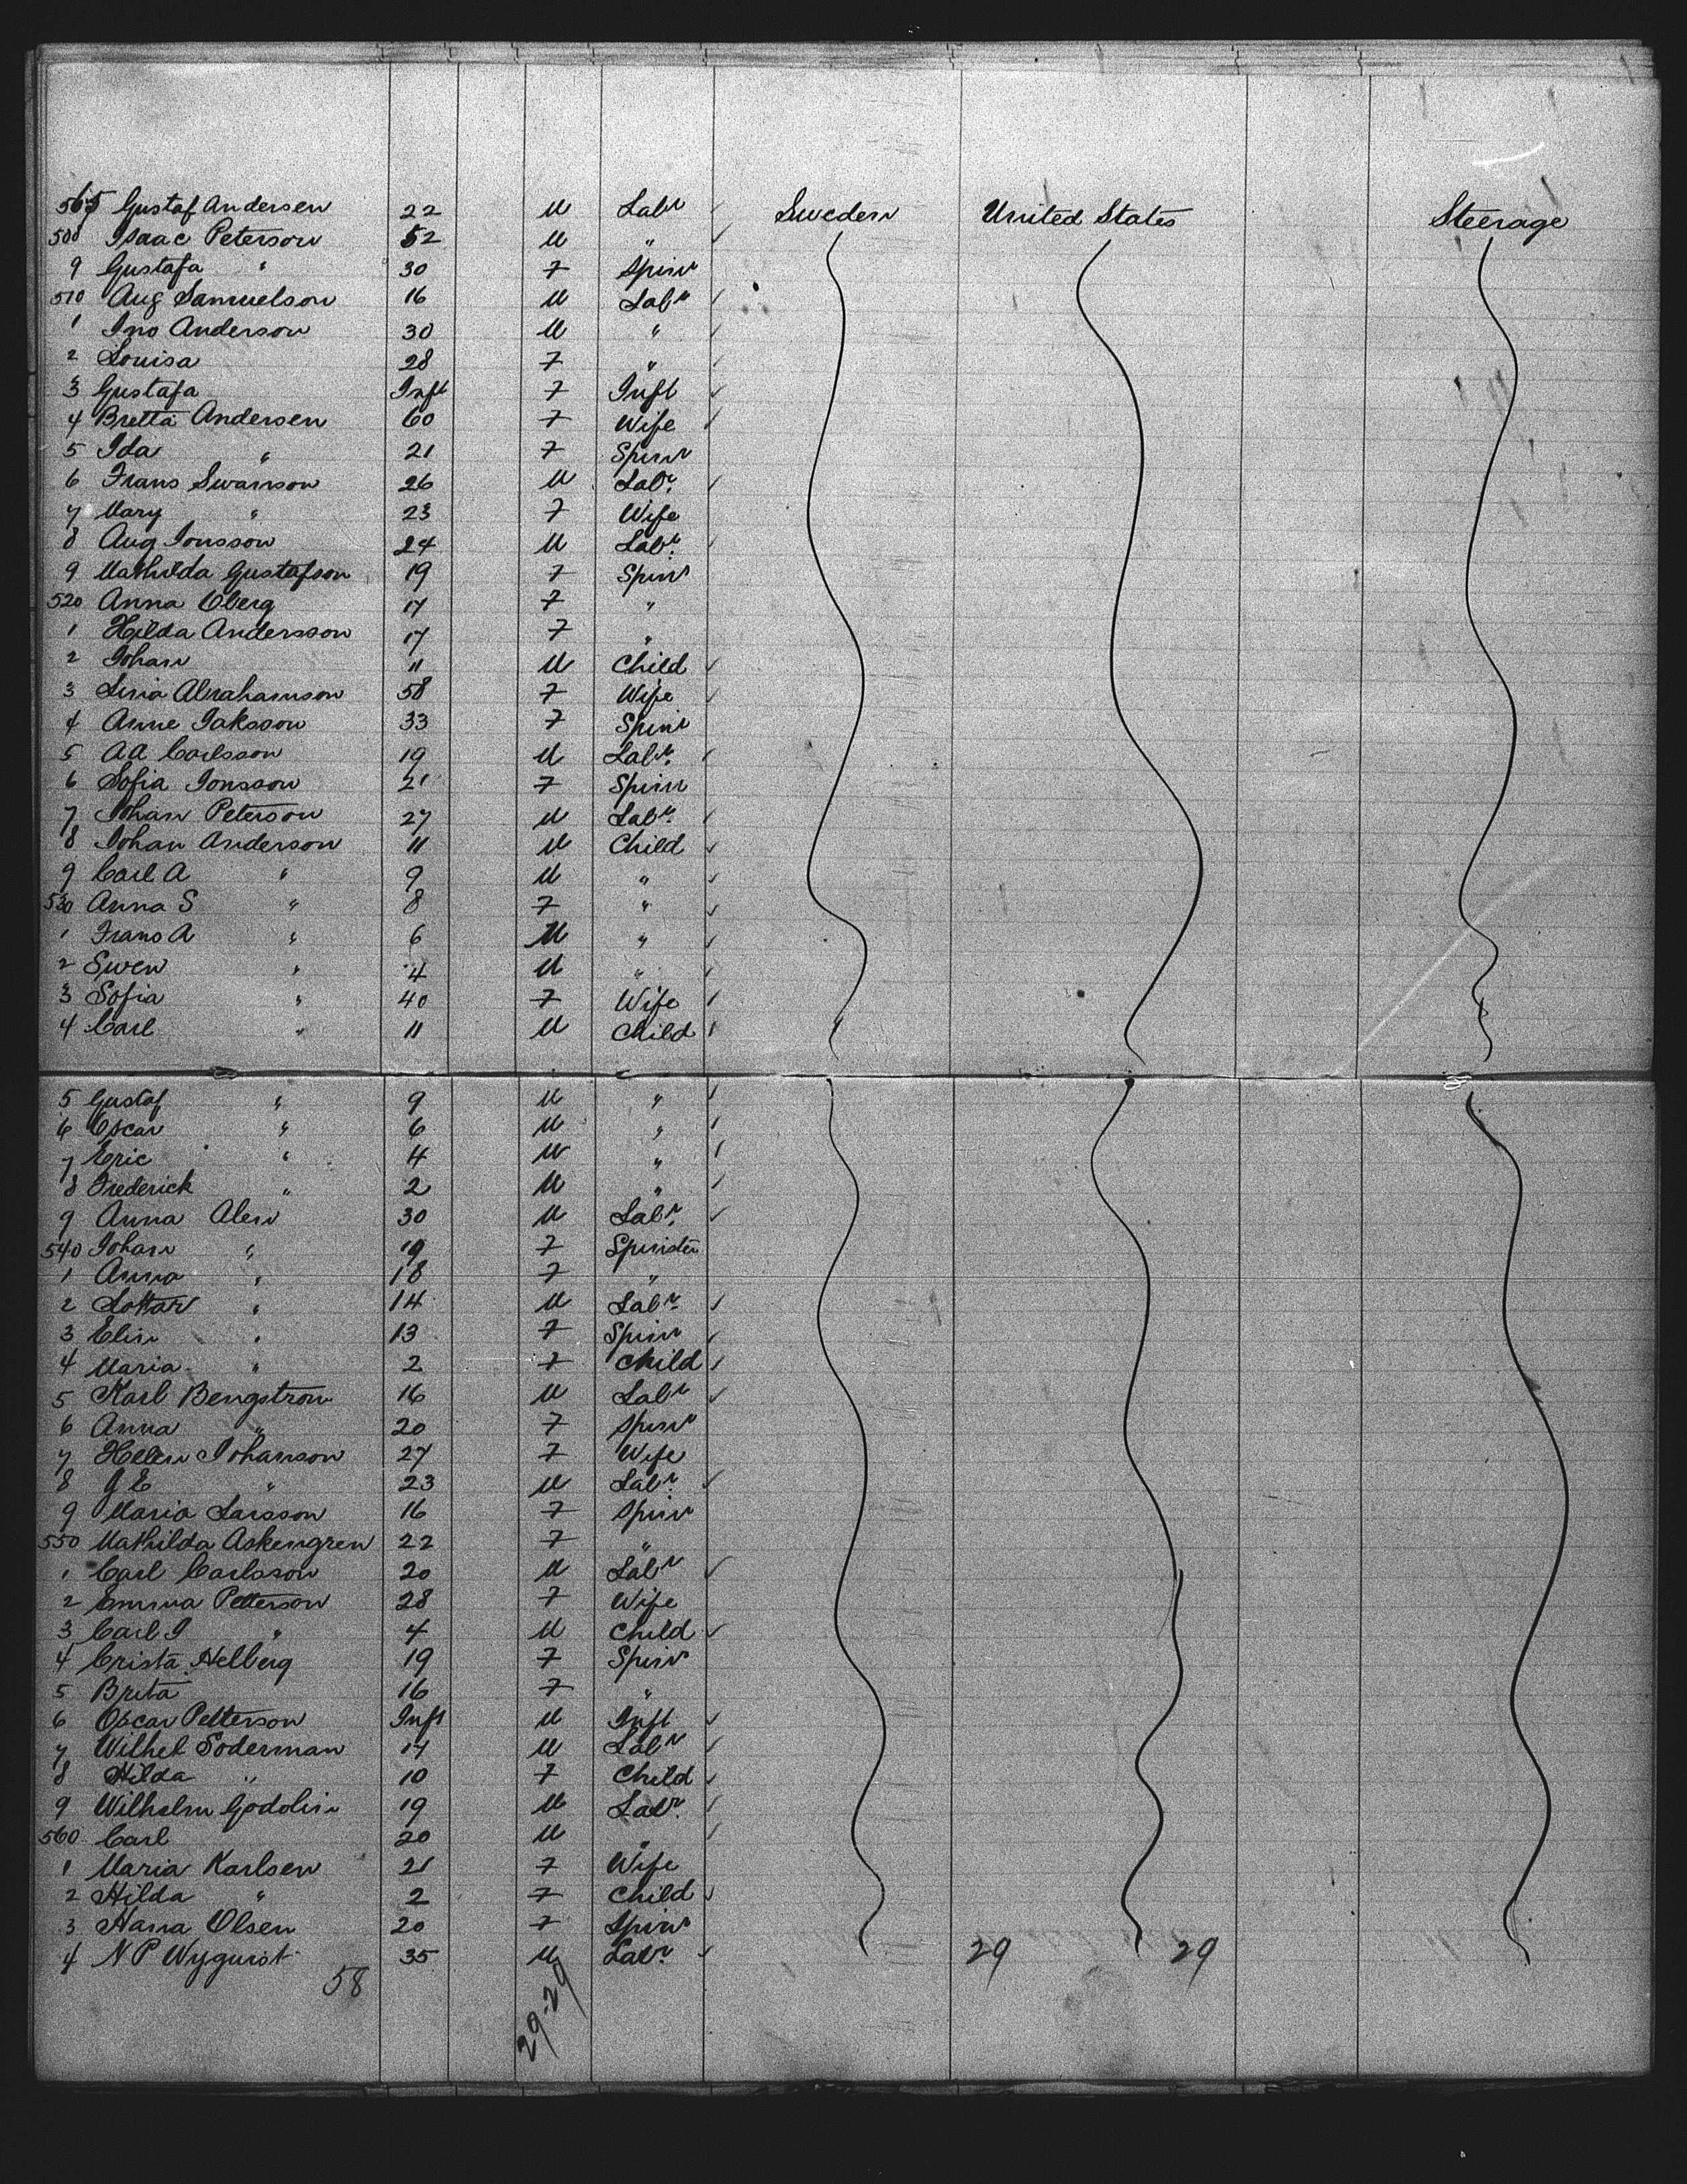 565 Gustaf Andersen 22 M Labr Sweden United States Steerage
508 Isaac Peterson 52 M "
9 Gustafa " 30 F Spinr
510 Aug Samuelson 16 M Labr
1 Jno Anderson 30 M "
2 Louisa 28 F "
3 Gustafa Inft F Inft
4 Bretta Andersen 60 F Wife
5 Ida " 21 F Spinr
6 Frans Swanson 26 M Labr.
7 Mary " 23 F Wife
8 Aug Jonsson 24 M Labr.
9 Mathilda Gustafson 19 F Spinr
520 Anna Oberg 17 F "
1 Hilda Andersson 17 F "
2 Johan 11 M Child
3 Lina Abrahamson 58 F Wife
4 Anne Jaksson 33 F Spinr
5 A A Carlsson 19 M Labr.
6 Sofia Jonsson 21 F Spinr
7 Johan Peterson 27 M Labr.
8 Johan Anderson 11 M Child
9 Carl A " 9 M "
530 Anna S " 8 F "
1 Frans A " 6 M "
2 Swen " 4 M "
3 Sofia " 40 F Wife
4 Carl " 11 M Child
5 Gustaf " 9 M "
6 Oscar " 6 M "
7 Eric " 4 M "
8 Frederick " 2 M "
9 Anna Alen 30 M Labr.
540 Johan " 19 F Spinster
1 Anna " 18 F "
2 Lottar " 14 M Labr.
3 Elin " 13 F Spinr
4 Maria " 2 F Child
5 Karl Bengstrom 16 M Labr
6 Anna " 20 F Spinr
7 Helen Johanson 27 F Wife
8 J E " 23 M Labr.
9 Maria Larsson 16 F Spinr
550 Mathilda Askengren 22 F "
1 Carl Carlsson 20 M Labr
2 Emma Petterson 28 F Wife
3 Carl J " 4 M Child
4 Crista Helberg 19 F Spinr
5 Brita 16 F "
6 Oscar Petterson Inft M Inft
7 Wilhel Soderman 17 M Labr
8 Hilda " 10 F Child
9 Wilhelm Godolin 19 M Labr.
560 Carl 20 M "
1 Maria Karlsen 21 F Wife
2 Hilda " 2 F Child
3 Hana Olsen 20 F Spinr
4 N P Wyquist 35 M Labr. 29 29
58
29-29